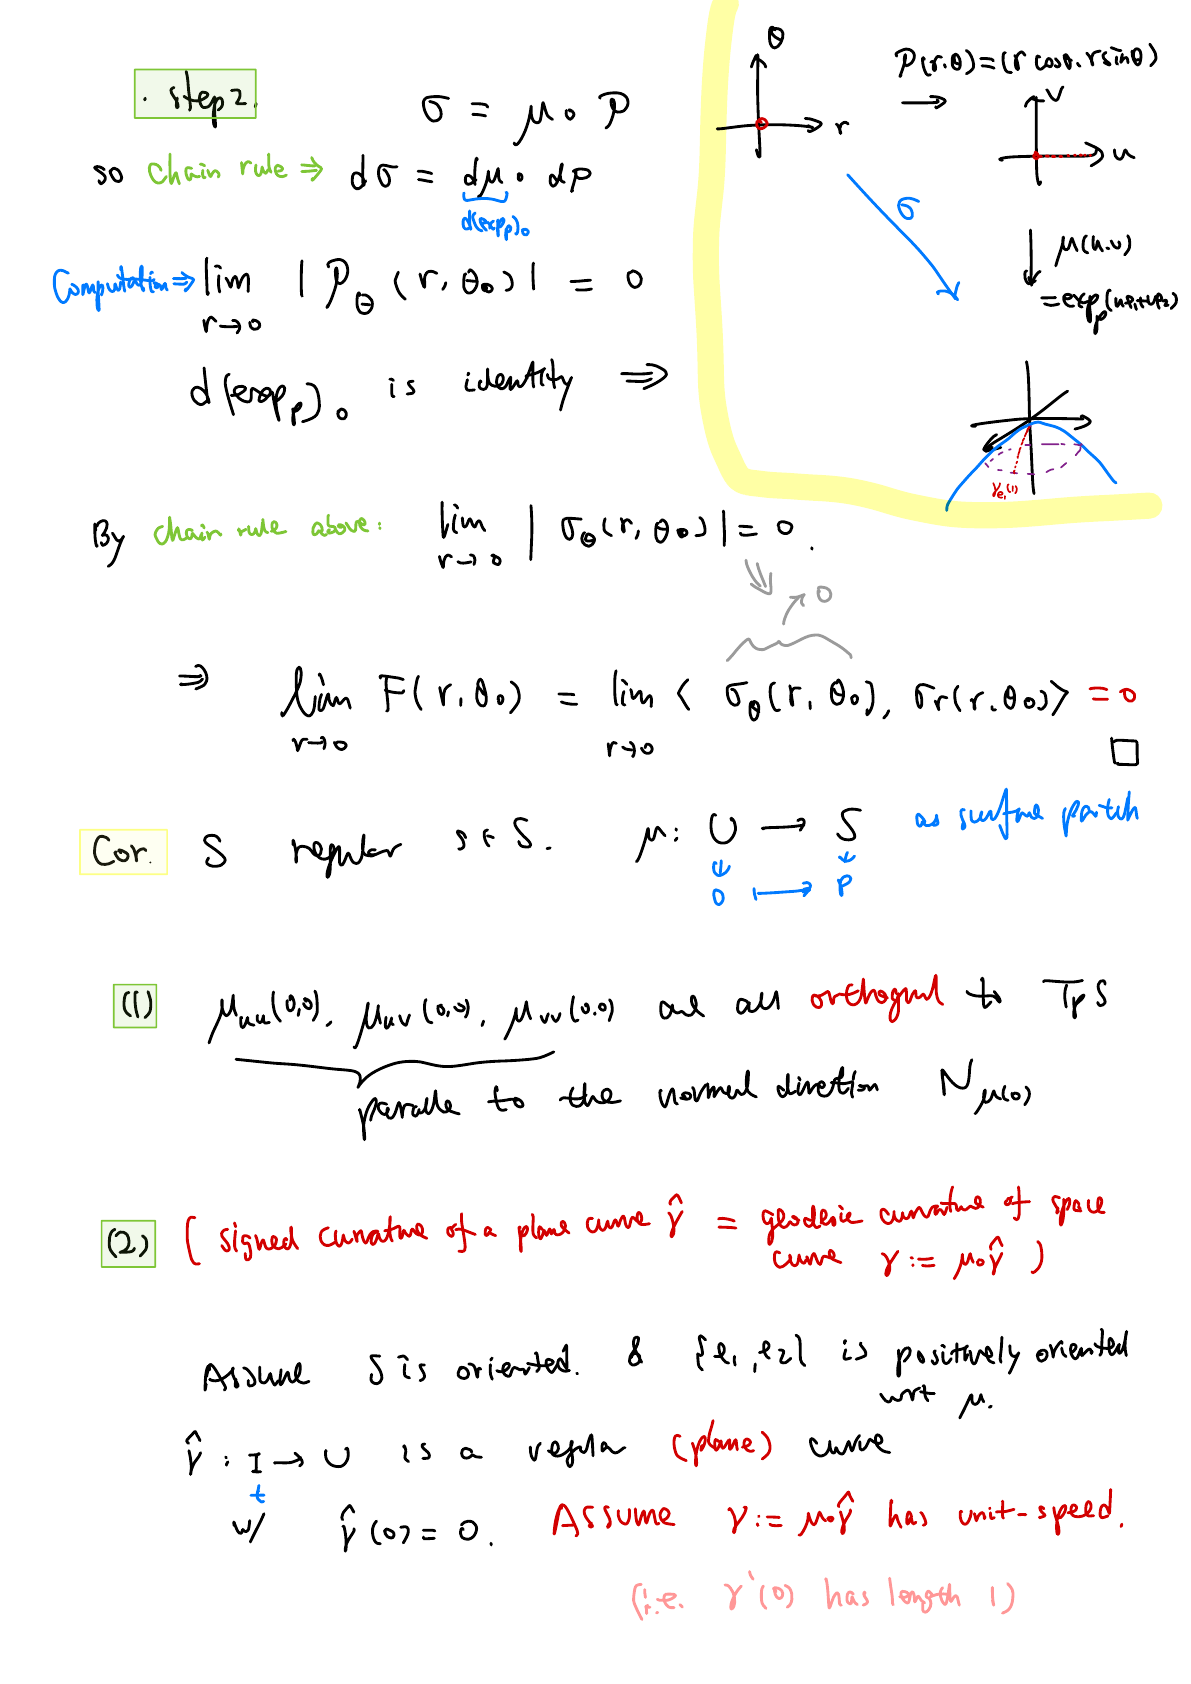 . step 2.
σ = μ∘P
so chain rule ⇒ dσ = dμ ∘ dP
d(exp_p)_0
Computation ⇒ lim_{r→0} |P_θ(r, θ₀)| = 0
d(exp_p)_0 is identity ⇒
θ
r
P(r.θ)=(r cosθ. r sinθ)
→
v
u
σ
↓ μ(u.v)
=exp_p(ue₁+ve₂)
γ_{e₁}(1)
By chain rule above: lim_{r→0} | σ_θ(r, θ₀)| = 0.
⇓
↗ 0
⇒ lim_{r→0} F(r, θ₀) = lim_{r→0} ⟨ σ_θ(r, θ₀), σ_r(r.θ₀)⟩ = 0
□
Cor. S regular s ∈ S. μ: U → S as surface patch
0 ↦ p
(1) μ_uu(0,0), μ_uv(0,0), μ_vv(0.0) are all orthognal to T_pS
paralle to the normal direction N_{μ(0)}
(2) ( signed curvature of a plane curve γ̂ = geodesic curvature of space
curve γ := μ∘γ̂ )
Assume S is oriented. & {e₁, e₂} is positively oriented
wrt μ.
γ̂ : I → U is a regular (plane) curve
t
w/ γ̂(0) = 0. Assume γ := μ∘γ̂ has unit-speed.
(i.e. γ'(0) has length 1)